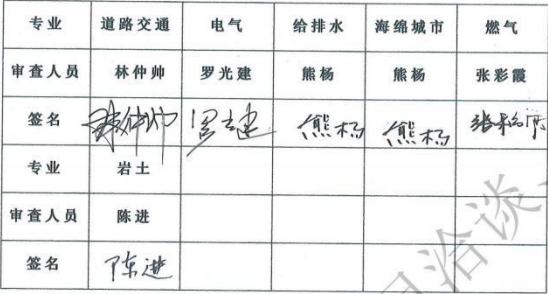 专业 道路交通 电气 给排水 海绵城市 燃气
审查人员 林仲帅 罗光建 熊杨 熊杨 张彩霞
签名 林仲帅 罗光建 熊杨 熊杨 张彩霞
专业 岩土
审查人员 陈进
签名 陈进
洽谈